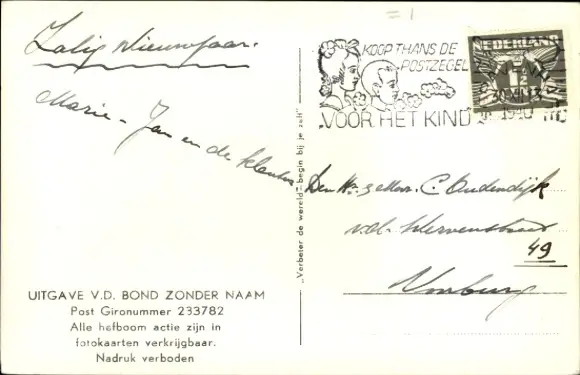 = 1
Zalig Nieuwjaar.
Marie - Jan en de kleuters
KOOP THANS DE
POSTZEGEL
"VOOR HET KIND"
NEDERLAND
1½
30 XII 13
1940
"Verbeter de wereld - begin bij je zelf"
Den Hr. & Mevr. C. Oudendijk
v.d. Wervenstraat
49
Voorburg
UITGAVE V.D. BOND ZONDER NAAM
Post Gironummer 233782
Alle hefboom actie zijn in
fotokaarten verkrijgbaar.
Nadruk verboden